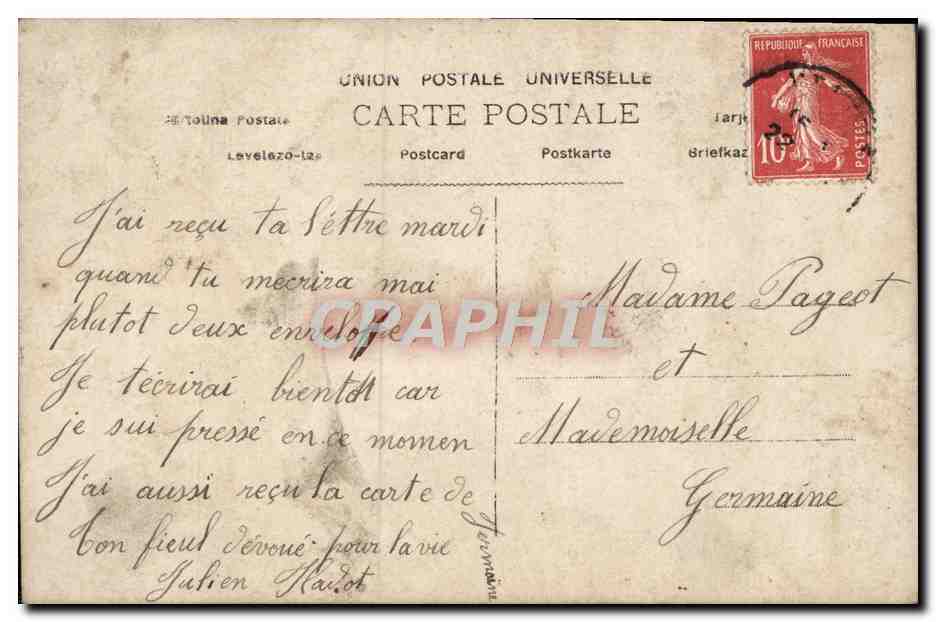 UNION POSTALE UNIVERSELLE
CARTE POSTALE
Postcard Postkarte
REPUBLIQUE FRANÇAISE
10
POSTES
J'ai reçu ta l'éttre mardi
quand tu mecrira mai
plutot deux enveloppe
Je técrirai bientot car
je sui pressé en ce momen
J'ai aussi reçu la carte de
Germaine
Ton fieul dévoué pour la vie
Julien
Madame Pageot
et
Mademoiselle
Germaine
CPAPHIL